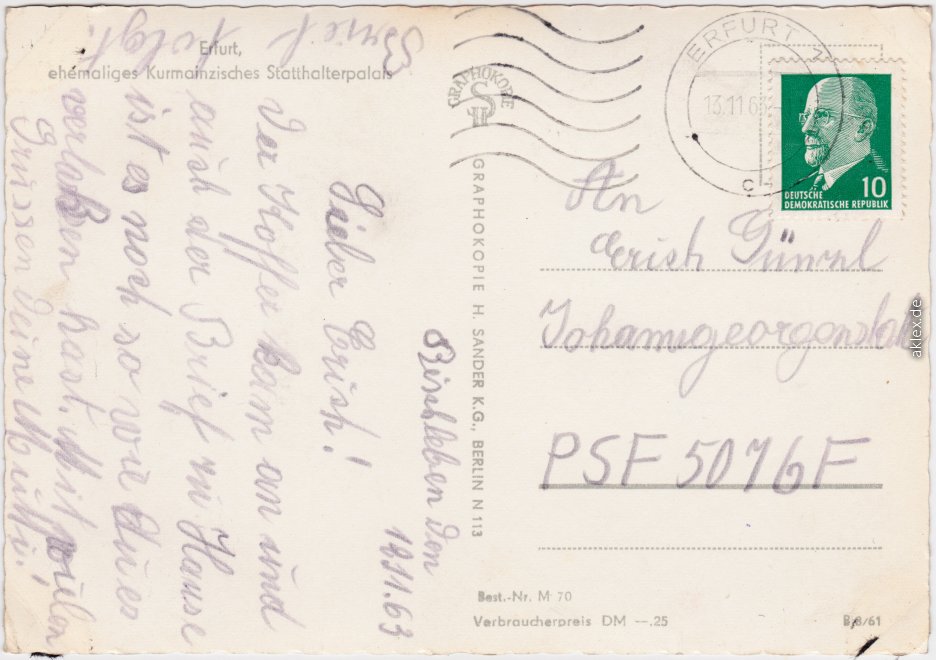 Erfurt,
ehemaliges Kurmainzisches Statthalterpalais
Bischleben den
12.11.63
Lieber Erich!
Der Koffer kam an und
auch der Brief im Hause
ist es noch so wie du es
verlaßen hast. Mit vielen
Grüssen deine Mutti!
Brief
folgt.
GRAPHOKOPIE
SH
GRAPHOKOPIE H. SANDER K.G., BERLIN N 113
ERFURT 7
13.11.63
c
DEUTSCHE
DEMOKRATISCHE REPUBLIK
10
An
Erich Günzel
Johanngeorgenstadt
PSF 5076F
Best.-Nr. M 70
Verbraucherpreis DM —.25
B 8/61
aklex.de